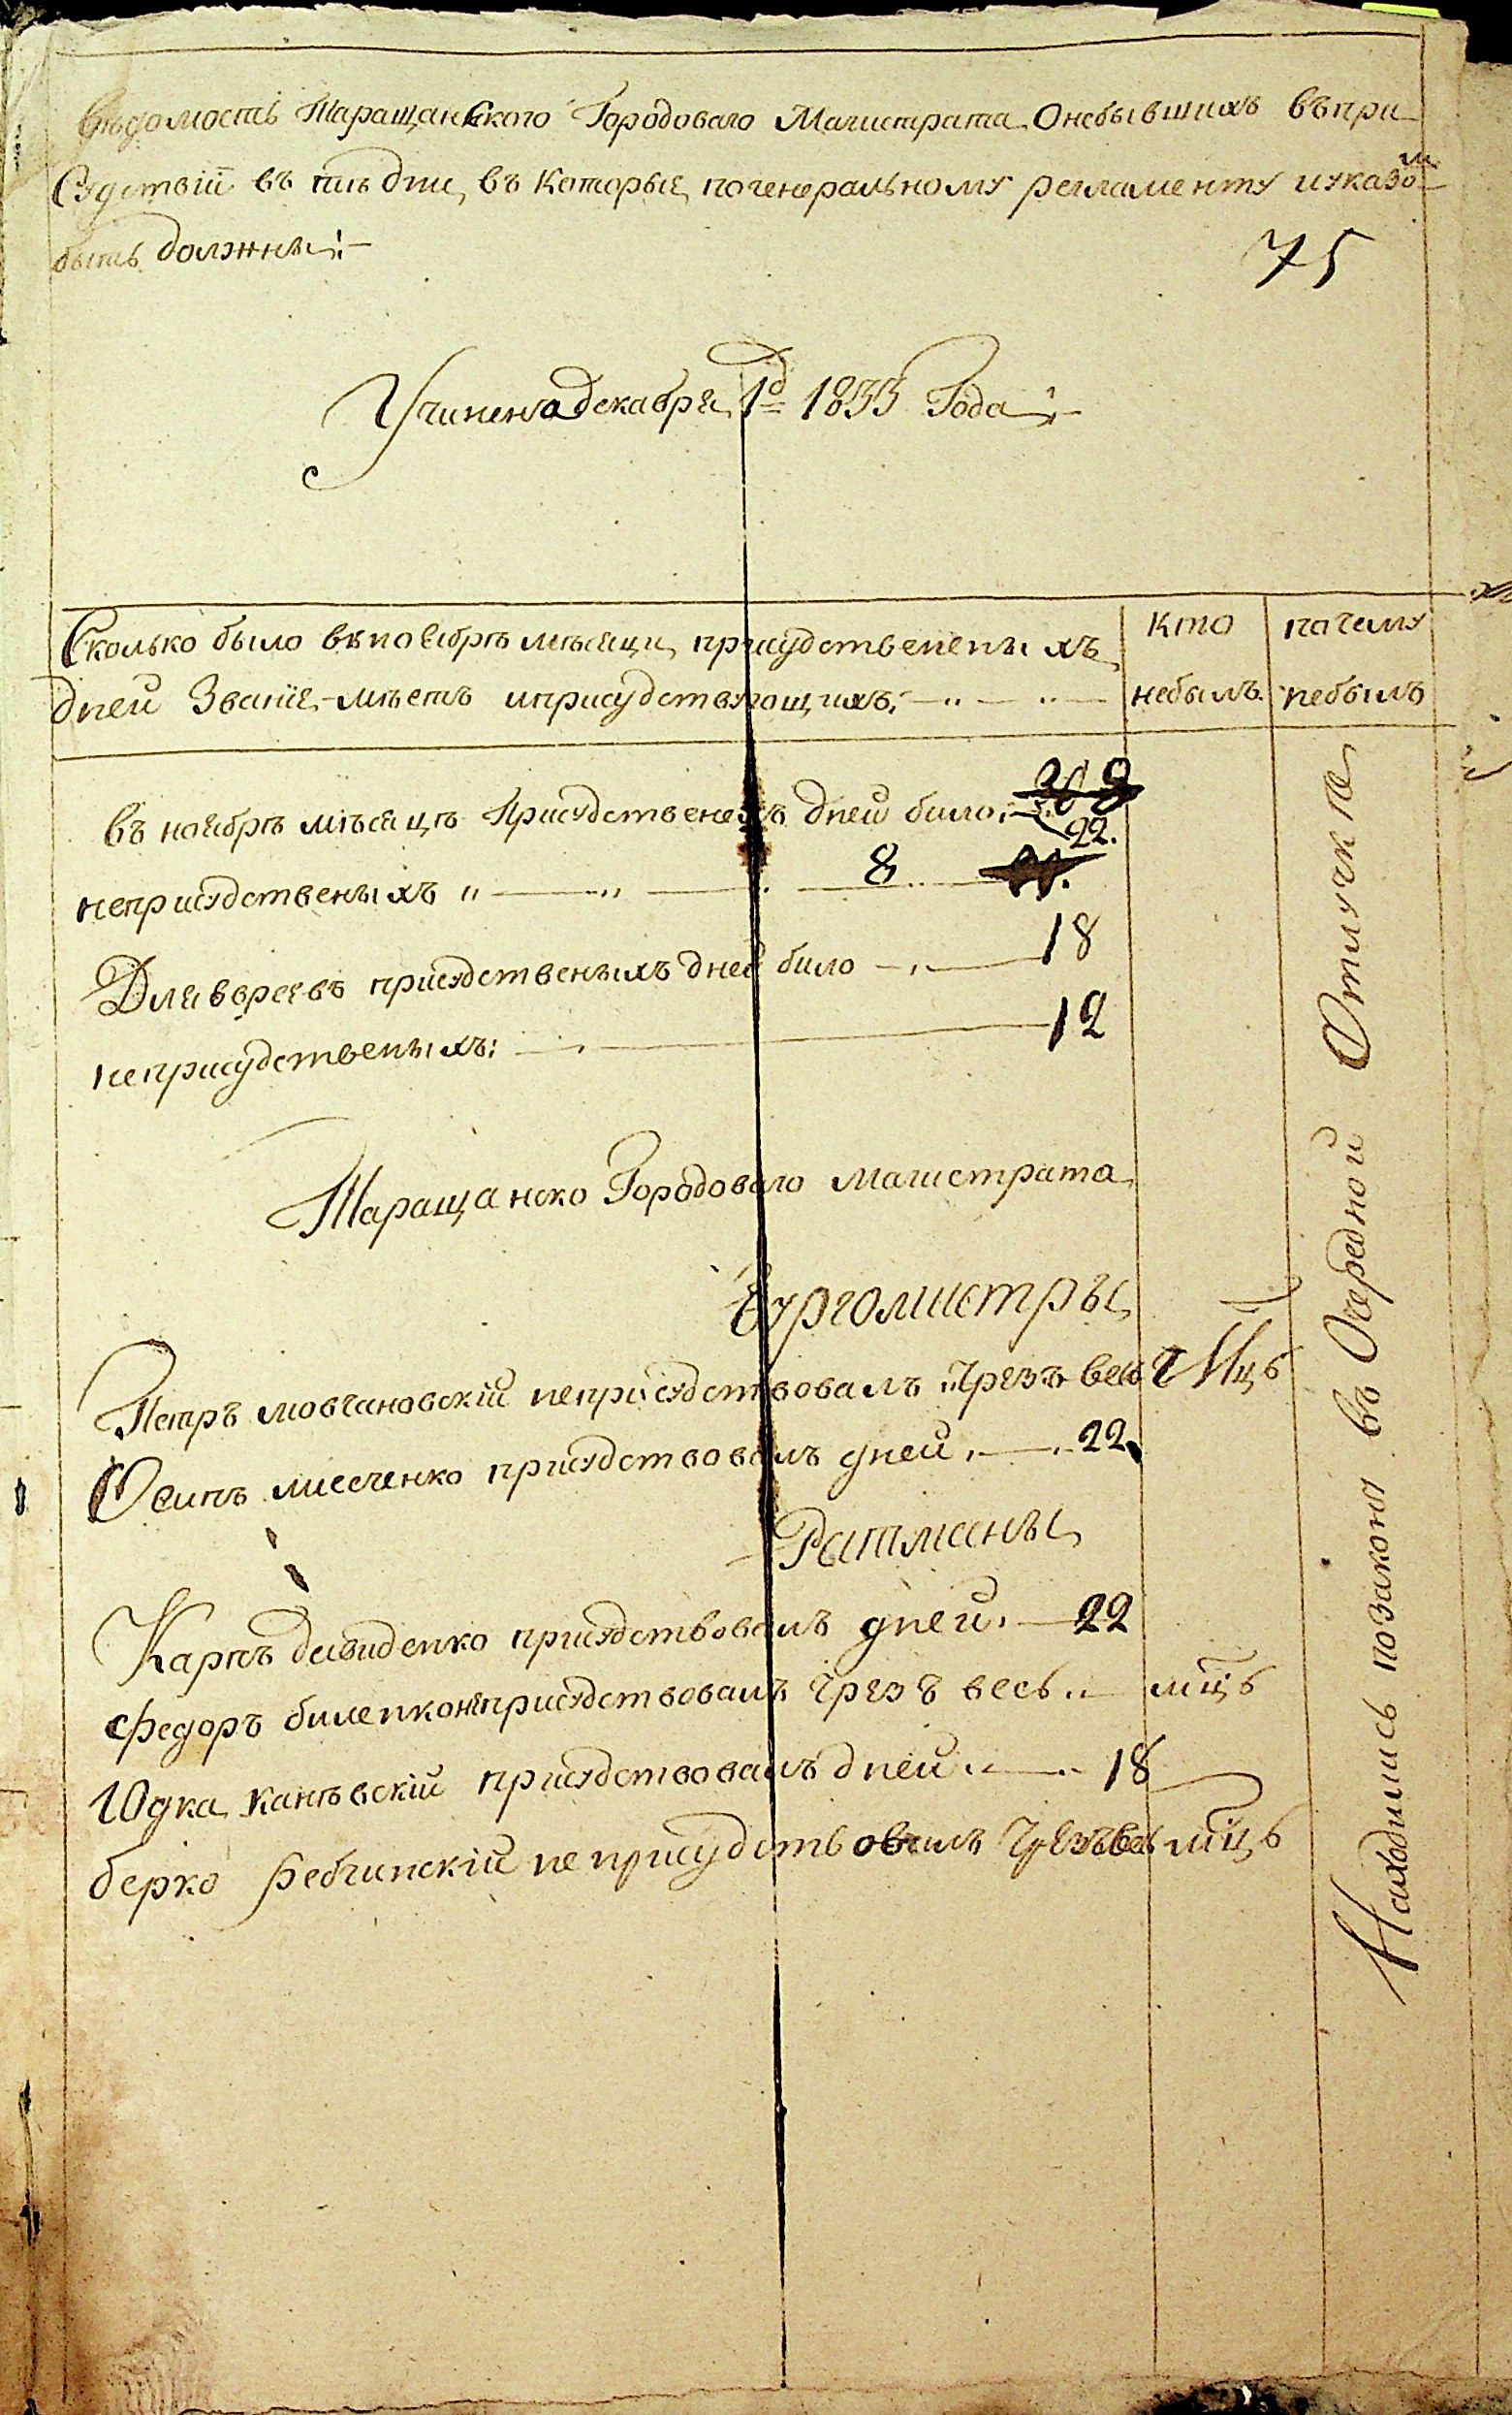 Вѣдомость Таращанского Городоваго Магистрата Онебывшихъ въпри
Судствіи въ тѣ дни, въ Которые погенеральному регламенту иуказом
быть должны:—
75
Учинена декабря 1д 1833 Года
Сколько было въноябрѣ мѣсяцѣ присудственныхъ
дней Званіе-мѣстъ иприсудствующихъ:
кто
небылъ.
почему
небылъ
въ ноябрѣ мѣсяцѣ Присудственехъ дней било
22.
неприсудственыхъ 8
Для вереевъ присудственыхъ дней било 18
неприсудственыхъ: 12
Таращанско Городоваго магистрата
Бургомистры
Петръ мовчановскій неприсудствовалъ Чрезъ весь Мцъ
Осипъ мисеченко присудствовалъ дней 22
Ратманы
Карпъ давиденко присудствовалъ дней 22
Федоръ биленко неприсудствовалъ Чрезъ весь мцъ
Юдка каневскій присудствовалъ дней 18
берко неприсудствовалъ Чрезъ весь мцъ
Находились позакону въ Очередной Отлучкѣ